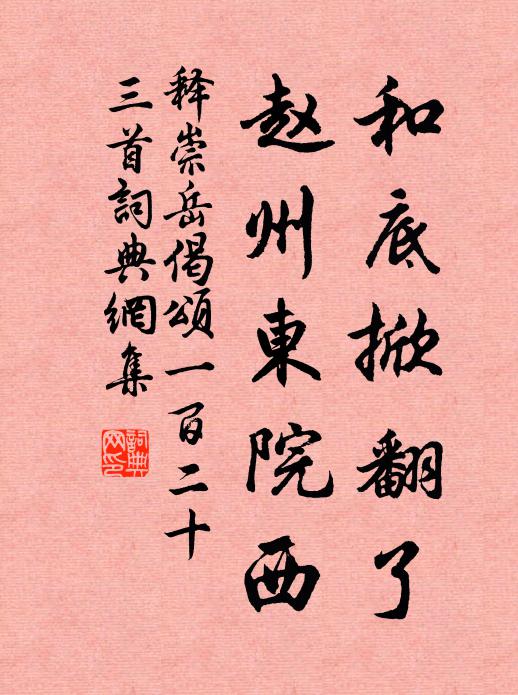 和底掀翻了
赵州東院西
释崇岳偈頌一百二十
三首詞典網集
詞典网印